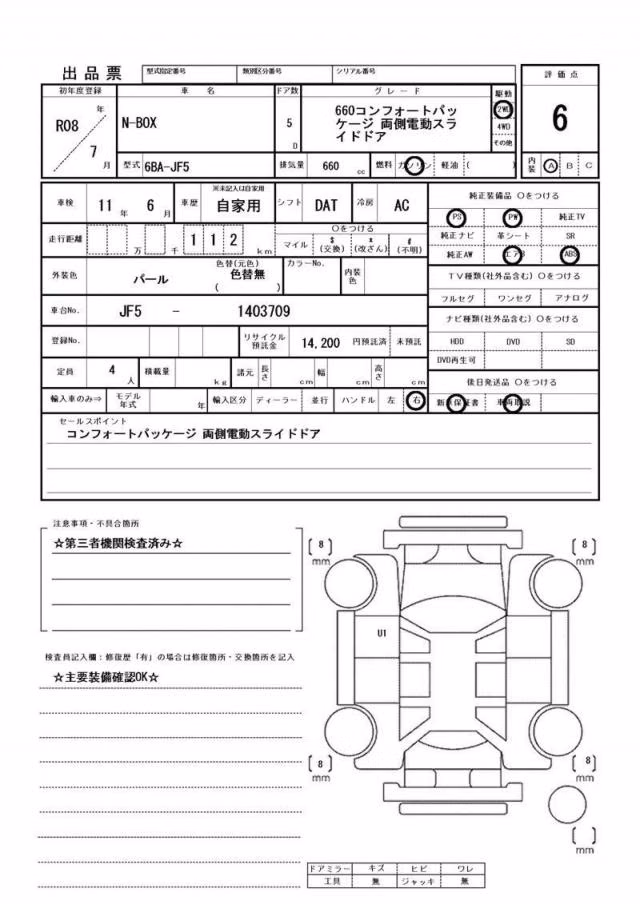 出品票 型式指定番号 類別区分番号 シリアル番号 評価点
初年度登録 車名 ドア数 グレード 駆動
R08 年 7 月 N-BOX 5 D 660コンフォートパッ
ケージ 両側電動スラ
イドドア
2WD
4WD
その他
6
型式 6BA-JF5 排気量 660 cc 燃料 ガソリン 軽油 ( ) 内装 A B C
車検 11 年 6 月 車歴 ※未記入は自家用 自家用 シフト DAT 冷房 AC
走行距離 万 千 1 1 2 km
○をつける
マイル $(交換) *(改ざん) #(不明)
外装色 パール 色替(元色) 色替無 ( ) カラーNo. 内装色
車台No. JF5 - 1403709
登録No. リサイクル預託金 14,200 円預託済 未預託
定員 4 人 積載量 kg 諸元 長さ cm 幅 cm 高さ cm
輸入車のみ⇒ モデル年式 年 輸入区分 ディーラー 並行 ハンドル 左 右
純正装備品 ○をつける
PS PW 純正TV
純正ナビ 革シート SR
純正AW エアB ABS
TV種類(社外品含む) ○をつける
フルセグ ワンセグ アナログ
ナビ種類(社外品含む) ○をつける
HDD DVD SD
DVD再生可
後日発送品 ○をつける
新車保証書 車両取説
セールスポイント
コンフォートパッケージ 両側電動スライドドア
注意事項・不具合箇所
☆第三者機関検査済み☆
検査員記入欄：修復歴「有」の場合は修復箇所・交換箇所を記入
☆主要装備確認OK☆
8 mm
8 mm
U1
8 mm
8 mm
mm
ドアミラー キズ ヒビ ワレ
工具 無 ジャッキ 無